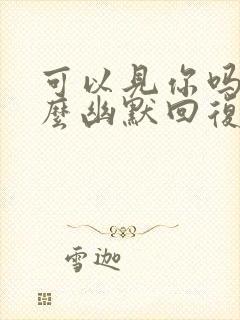 可以見你吗
麼幽默回復
雪迦